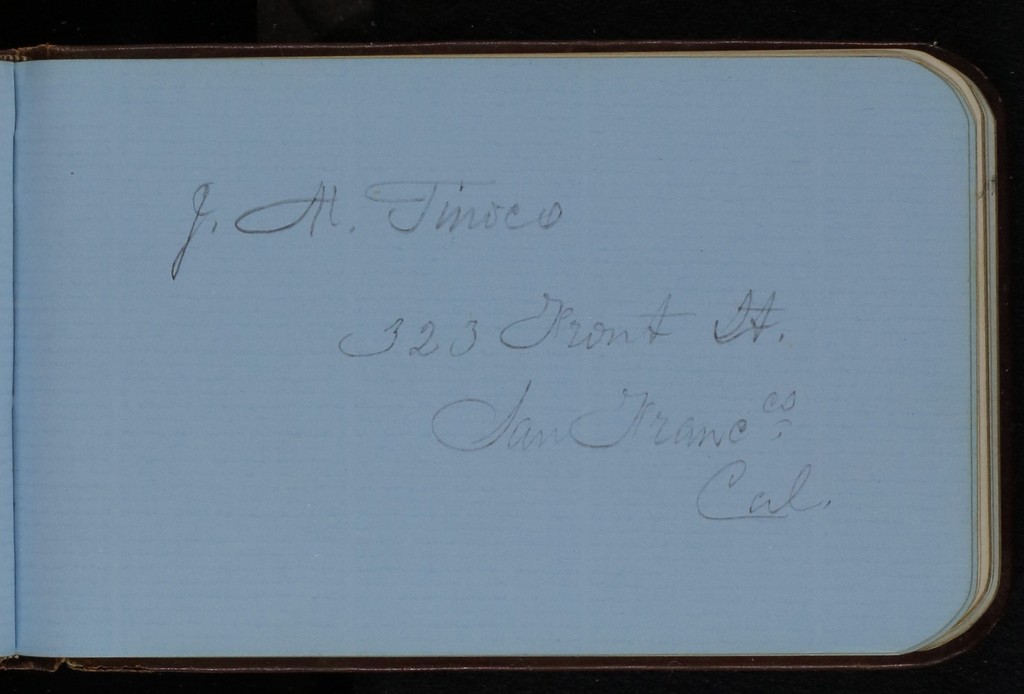 J. M. Tinoco
323 Front St.
San Franc^co.
Cal.